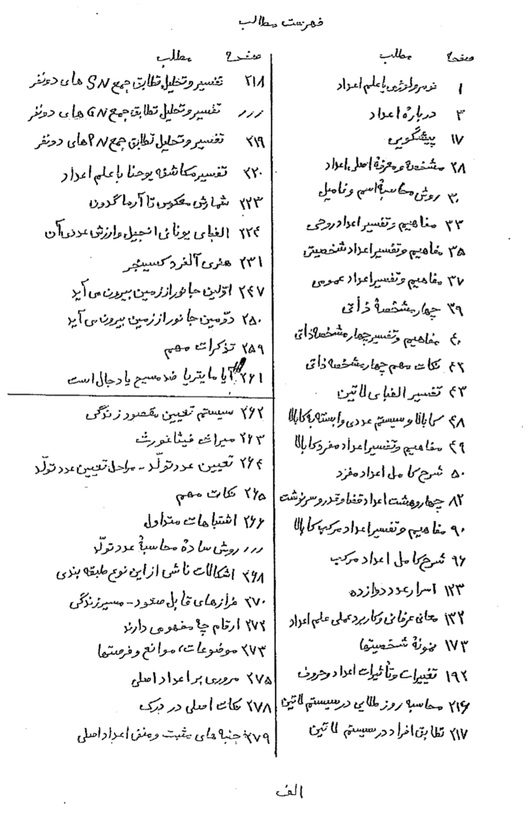 فهرست مطالب
صفحه مطلب
۱ نومرولوژی یا علم اعداد
۳ دربارهٔ اعداد
۱۷ پیشگویی
۲۸ مشخصه و معرفهٔ اصلی اعداد
۳۰ روش محاسبهٔ اسم و فامیل
۳۳ مفاهیم و تفسیر اعداد روحی
۳۵ مفاهیم و تفسیر اعداد شخصیتی
۳۷ مفاهیم و تفسیر اعداد عمومی
۳۹ چهار مشخصهٔ ذاتی
۴۰ مفاهیم و تفسیر چهار مشخصه ذاتی
۴۲ نکات مهم چهار مشخصهٔ ذاتی
۴۳ تفسیر الفبای لاتین
۴۸ کابالا و سیستم عددی وابسته به کابالا
۴۹ مفاهیم و تفسیر اعداد مفرد کابالا
۵۰ شرح کامل اعداد مفرد
۸۲ چهار و هشت اعداد قضا و قدر و سرنوشت
۹۰ مفاهیم و تفسیر اعداد مرکب کابالا
۹۶ شرح کامل اعداد مرکب
۱۲۳ اسرار عدد دوازده
۱۳۲ معانی عرفانی و کاربرد عملی علم اعداد
۱۷۳ نمونهٔ شخصیتها
۱۹۲ تغییرات و تأثیرات اعداد و حروف
۲۱۶ محاسبه روز طلایی در سیستم لاتین
۲۱۷ تطابق افراد در سیستم لاتین
صفحه مطلب
۲۱۸ تفسیر و تحلیل تطابق جمع SN های دونفر
٫٫٫ تفسیر و تحلیل تطابق جمع GN های دونفر
۲۱۹ تفسیر و تحلیل تطابق جمع PN های دونفر
۲۲۰ تفسیر مکاشفه یوحنا با علم اعداد
۲۲۳ شمارش معکوس تا آرماگدون
۲۲۴ الفبای یونانی انجیل و ارزش عددی آن
۲۳۱ هنری آلفرد کسینجر
۲۴۷ اولین جانور از زمین بیرون می آید
۲۵۰ دومین جانور از زمین بیرون می آید
۲۵۹ تذکرات مهم
۲۶۱ آیا مایتریا ضد مسیح یا دجال است
۲۶۲ سیستم تعیین مقصود زندگی
۲۶۳ میراث فیثاغورث
۲۶۴ تعیین عدد تولد - مراحل تعیین عدد تولد
۲۶۵ نکات مهم
۲۶۶ اشتباهات متداول
٫٫٫ روش سادهٔ محاسبهٔ عدد تولد
۲۶۸ اشکالات ناشی از این نوع طبقه بندی
۲۷۰ فرازهای قابل صعود - مسیر زندگی
۲۷۲ ارقام چه مفهومی دارند
۲۷۳ موضوعات، موانع و فرصتها
۲۷۵ مروری بر اعداد اصلی
۲۷۸ نکات اصلی در درک
۲۷۹ جنبه های مثبت و منفی اعداد اصلی
الف